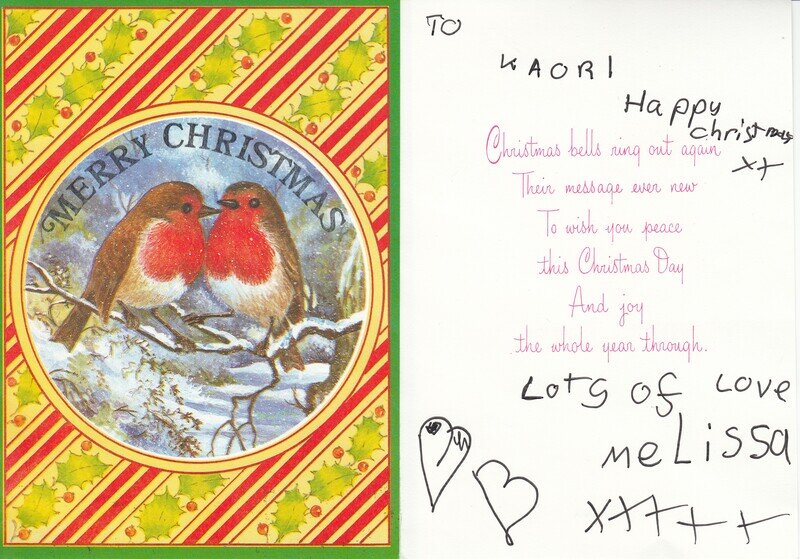 MERRY CHRISTMAS
TO
KAORI
Happy
christmas
xx
Christmas bells ring out again
Their message ever new
To wish you peace
this Christmas Day
And joy
the whole year through.
Lots of Love
meLissa
xxxxx